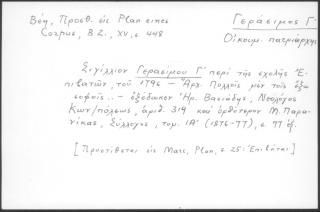 Βέη, Προσθ. εἰς Plan eines
Corpus, B.Z., XV, σ. 448
Γεράσιμος Γ΄
Οἰκουμ. πατριάρχης
Σιγίλλιον Γερασίμου Γ΄ περὶ τῆς σχολῆς Ἐ-
πιβατῶν, τοῦ 1796 – "Ἀρχ. Πολλοῖς μὲν τοῖς ἔξω
σοφοῖς.. – ἐξέδωκεν Ἡρ. Βασιάδης, Νεολόγος
Κων/πόλεως, ἀριθ. 319 καὶ ὀρθότερον Μ. Παρα-
νίκας, Σύλλογος, τομ. ΙΑ΄ (1876-77), σ. 77 ἑξ.
[Προστίθεται εἰς Marc, Plan, σ. 25: Ἐπιβάται]